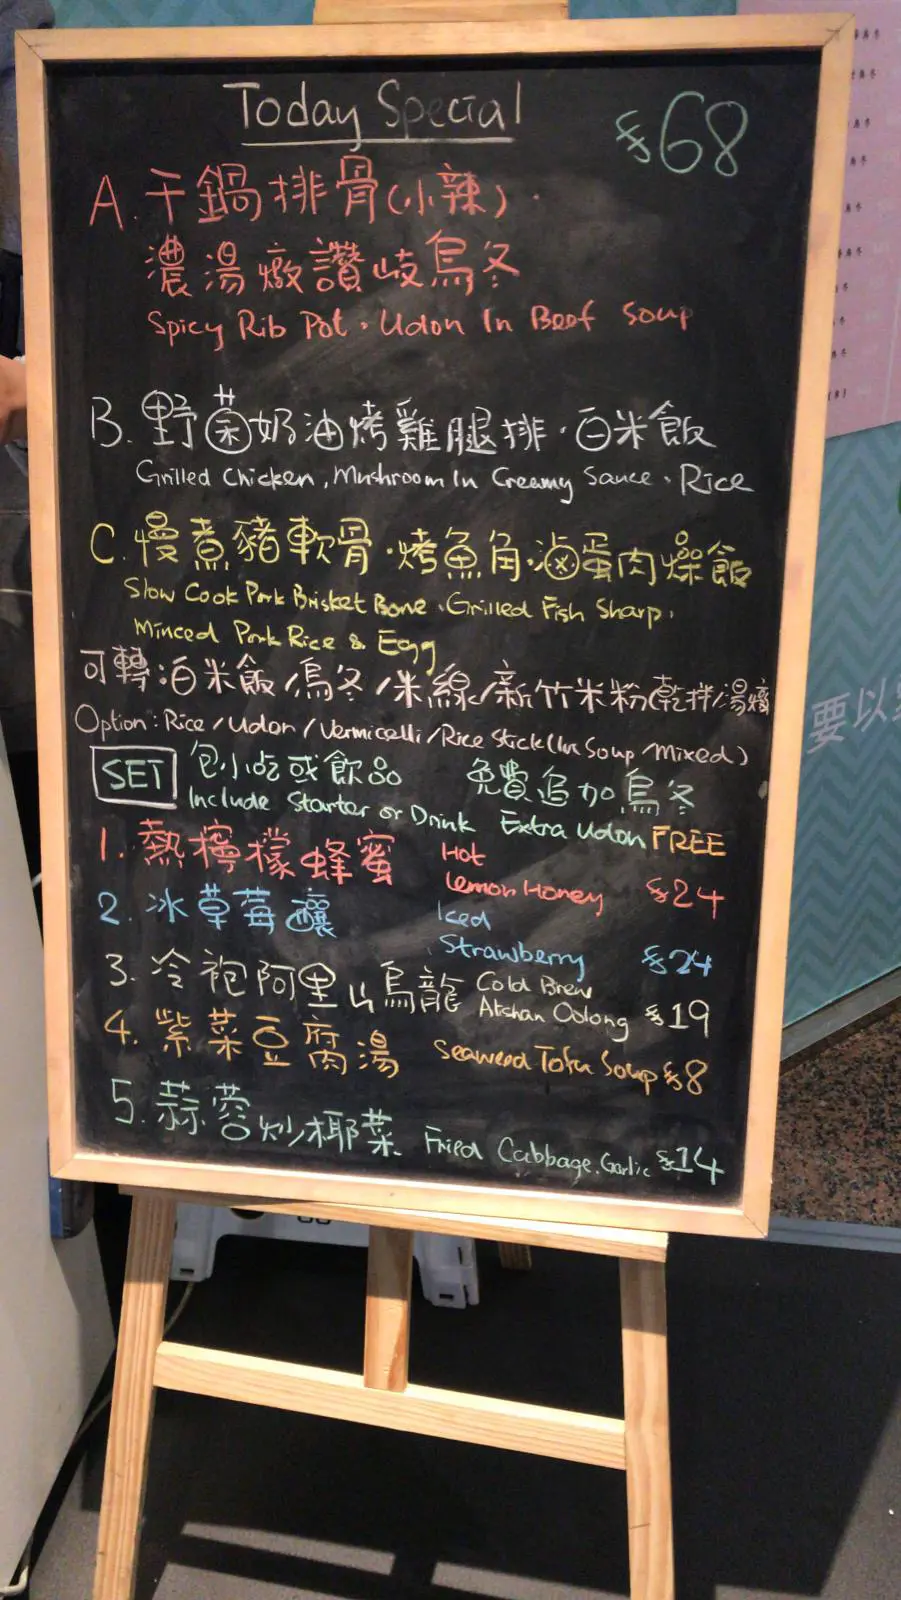 Today Special
$68
A. 干鍋排骨(小辣)·
濃湯燉讚岐烏冬
Spicy Rib Pot · Udon In Beef Soup
B. 野菌奶油烤雞腿排·白米飯
Grilled Chicken, Mushroom In Creamy Sauce · Rice
C. 慢煮豬軟骨·烤魚角·滷蛋肉燥飯
Slow Cook Pork Brisket Bone · Grilled Fish Sharp,
Minced Pork Rice & Egg
可轉白米飯/烏冬/米線/新竹米粉(乾拌/湯
Option: Rice/Udon/Vermicelli/Rice Stick(In Soup/Mixed)
SET 包小吃或飲品 免費追加烏冬
Include Starter or Drink Extra Udon FREE
1. 熱檸檬蜂蜜 Hot
Lemon Honey $24
2. 冰草莓釀 Iced
Strawberry $24
3. 冷袍阿里山烏龍 Cold Brew
Alishan Oolong $19
4. 紫菜豆腐湯 Seaweed Tofu Soup $8
5. 蒜蓉炒椰菜 Fried Cabbage, Garlic $14
要以